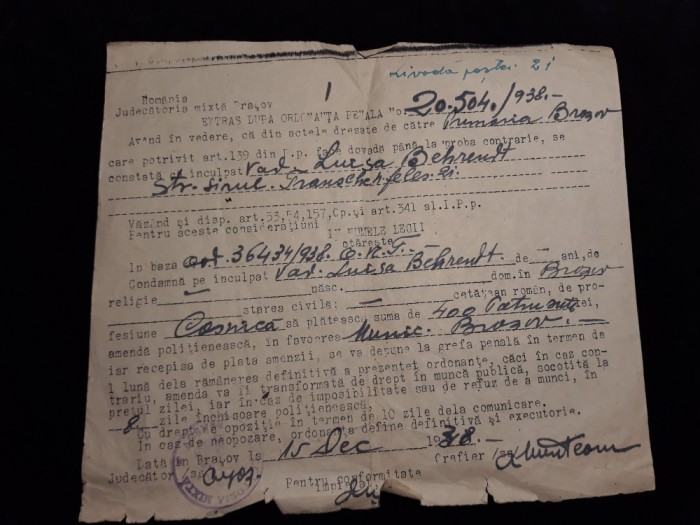 Livada poștei 21
1
România
Judecătoria mixtă Brașov
EXTRAS DUPA ORDONANȚA PENALA No. 20.504./938.-
Având în vedere, că din actele dresate de către Primăria Brașov
care potrivit art.139 din I.p. fac dovadă până la proba contrarie, se
constată că inculpat Vad. Luisa Behrendt
Str. Sirul
Văzând și disp. art.53,54,157,Cp.și art.341 al.I.P.p.
Pentru aceste considerațiuni
IN NUMELE LEGII
otărește
In baza 36434/938.
Condamnă pe inculpat Vad. Luisa Behrendt de — ani,de
religie — născ. dom.în Brașov
starea civila: — cetățean român, de pro-
fesiune Casnică să plătească suma de 400 Patru sute lei,
amendă polițienească, în favoarea Munic. Brașov. —
iar recepisa de plata amenzii, se va depune la grefa penală în termen de
1 lună dela rămânerea definitivă a prezentei ordonanțe, căci în caz con-
trariu, amenda va fi transformată de drept în muncă publică, socotită la
prețul zilei, iar în caz de imposibilitate sau de refuz de a munci, în
8 zile închisoare polițienească,
Cu drept de opoziție în termen de 10 zile dela comunicare.
In caz de neopozare, ordonanța define definitivă și executorie.
Dată în Brașov la 15 Dec 1938.-
Judecător /ss/ Grefier /ss/ Munteanu
Pentru conformitate